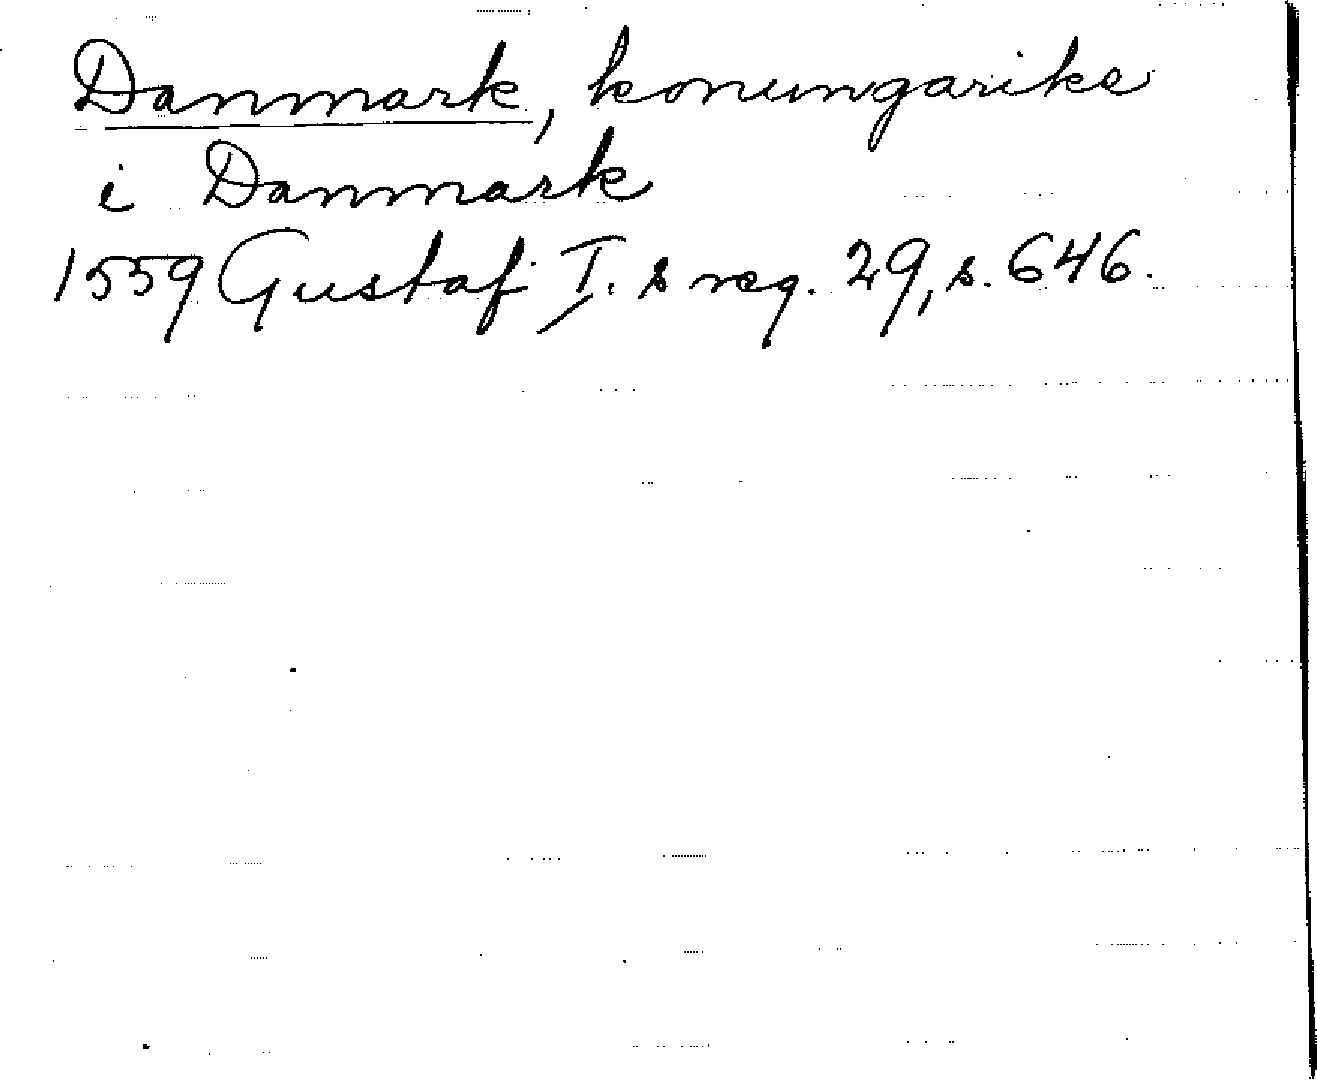 Danmark, konungarike
i Danmark
1559 Gustaf I. s reg. 29, s. 646.